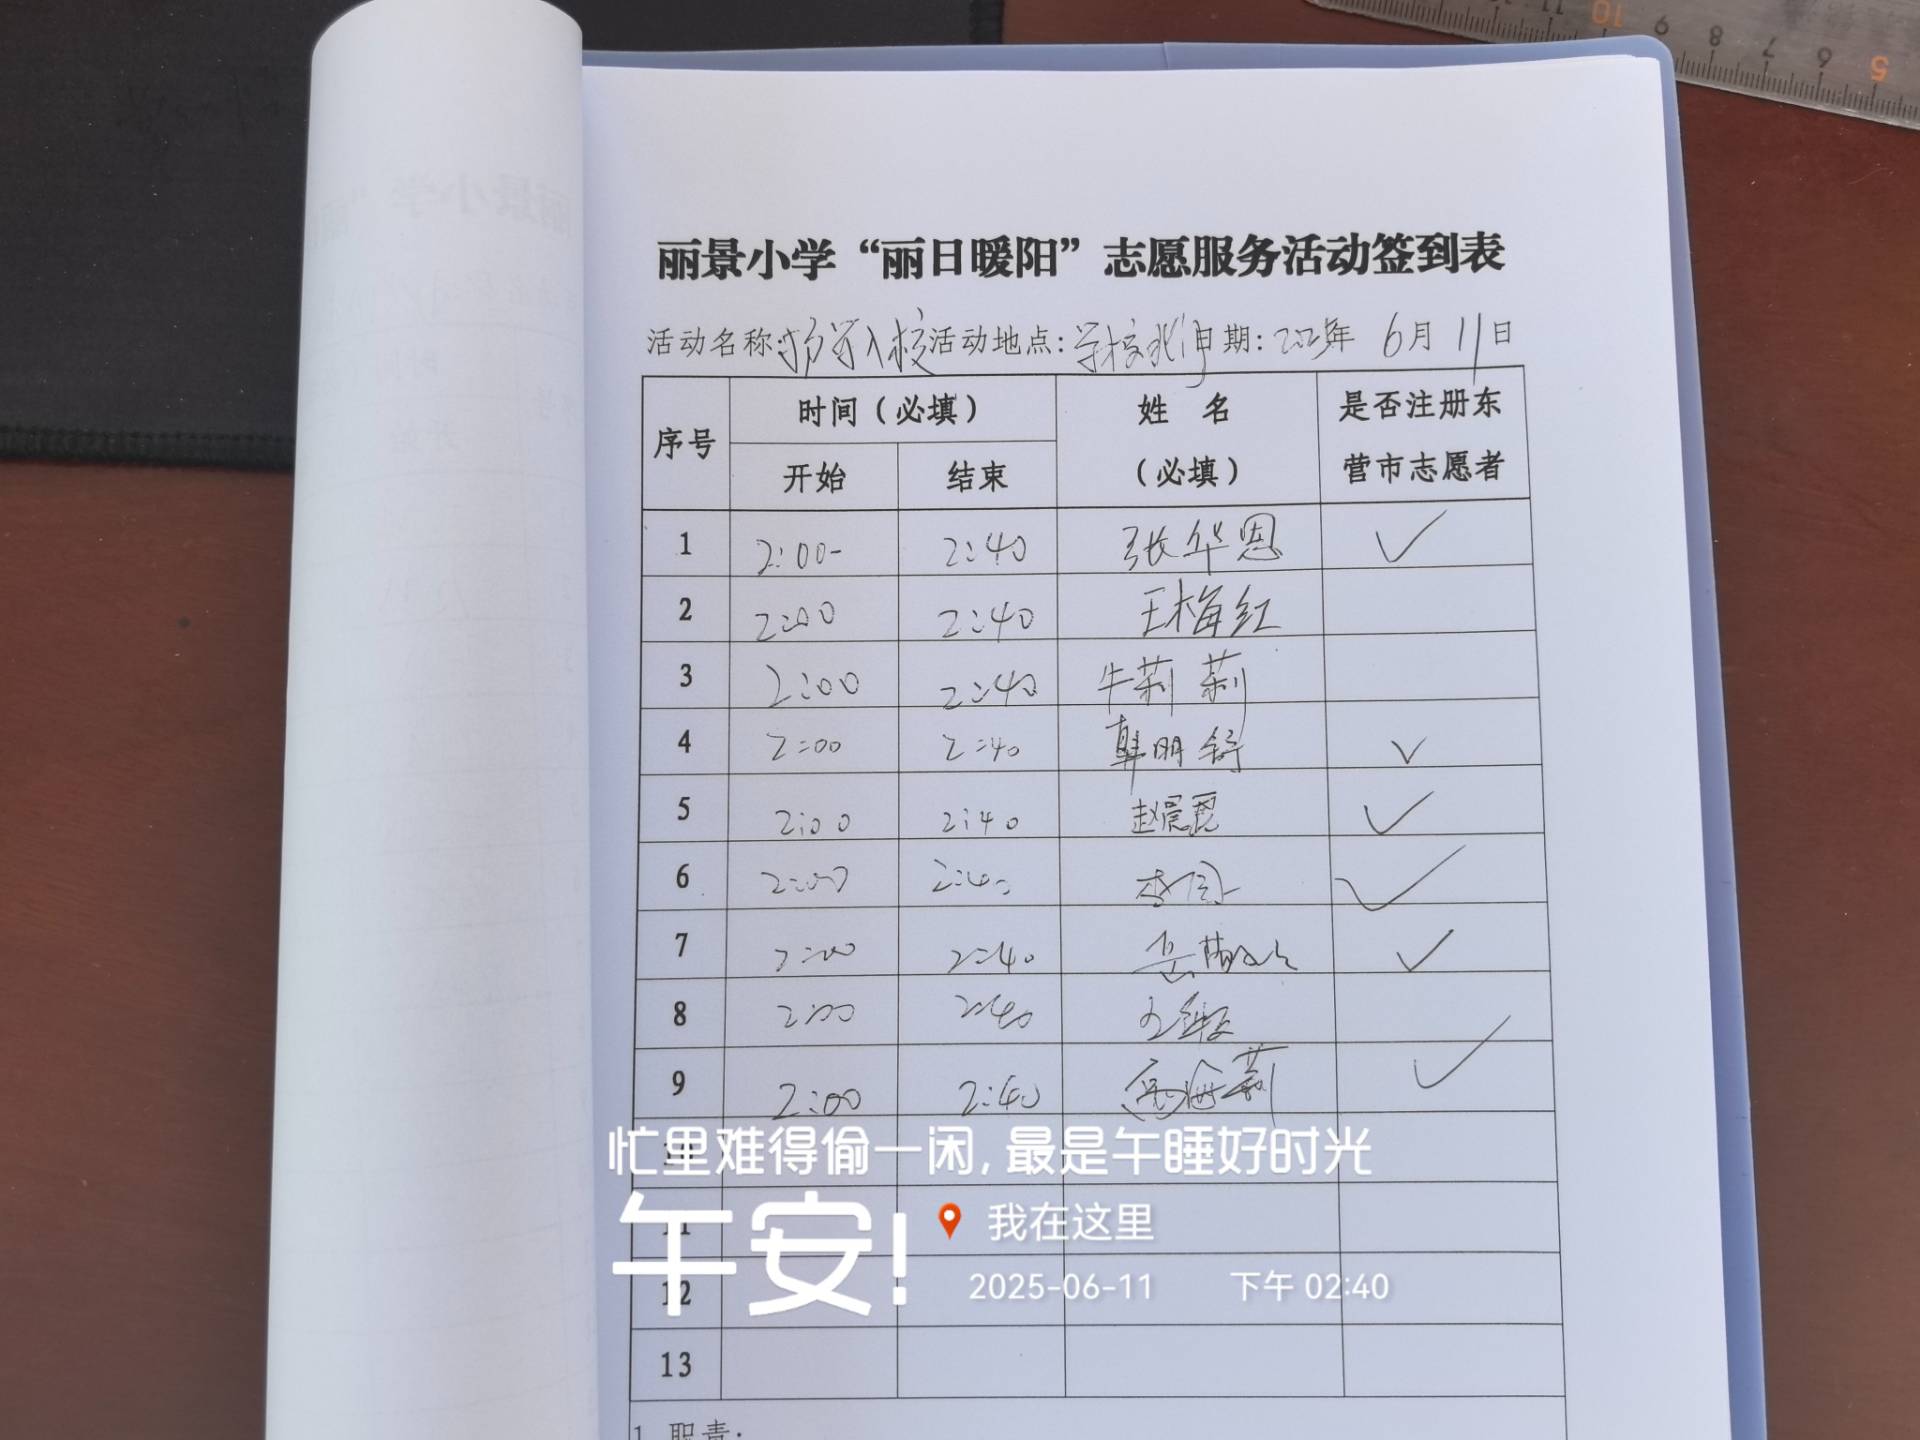 丽景小学“丽日暖阳”志愿服务活动签到表
活动名称: 入校 活动地点: 学校北门 日期: 2025年 6月 11日
序号 时间（必填） 姓 名（必填） 是否注册东营市志愿者
开始 结束
1 2:00- 2:40 张华恩 ✓
2 2:00 2:40 王梅红
3 2:00 2:40 牛莉莉
4 2:00 2:40 韩明舒 ✓
5 2:00 2:40 赵晨 ✓
6 2:00 2:40 李 ✓
7 2:00 2:40 岳 ✓
8 2:00 2:40
9 2:00 2:40 海莉 ✓
10
11
12
13
1.职责:
忙里难得偷一闲,最是午睡好时光
午安!
我在这里
2025-06-11 下午 02:40
10 9 8 7 6 5